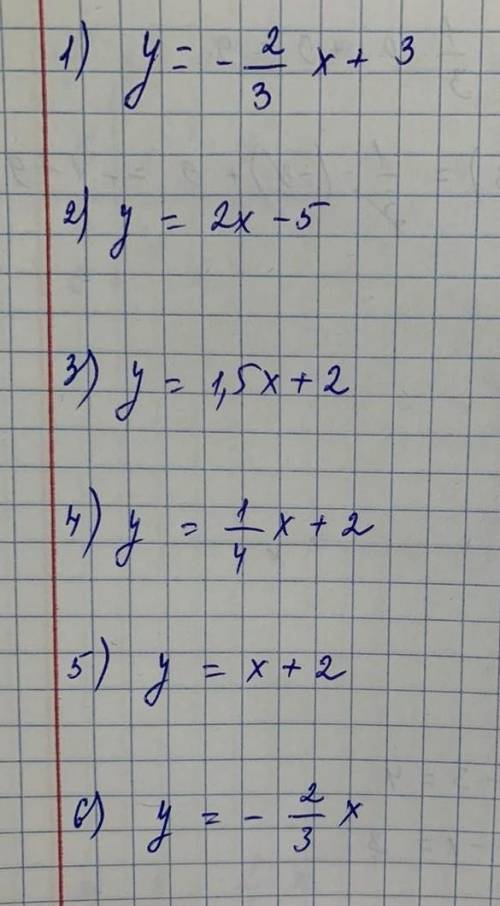 1) y = - 2/3 x + 3
2) y = 2x - 5
3) y = 1,5x + 2
4) y = 1/4 x + 2
5) y = x + 2
6) y = - 2/3 x